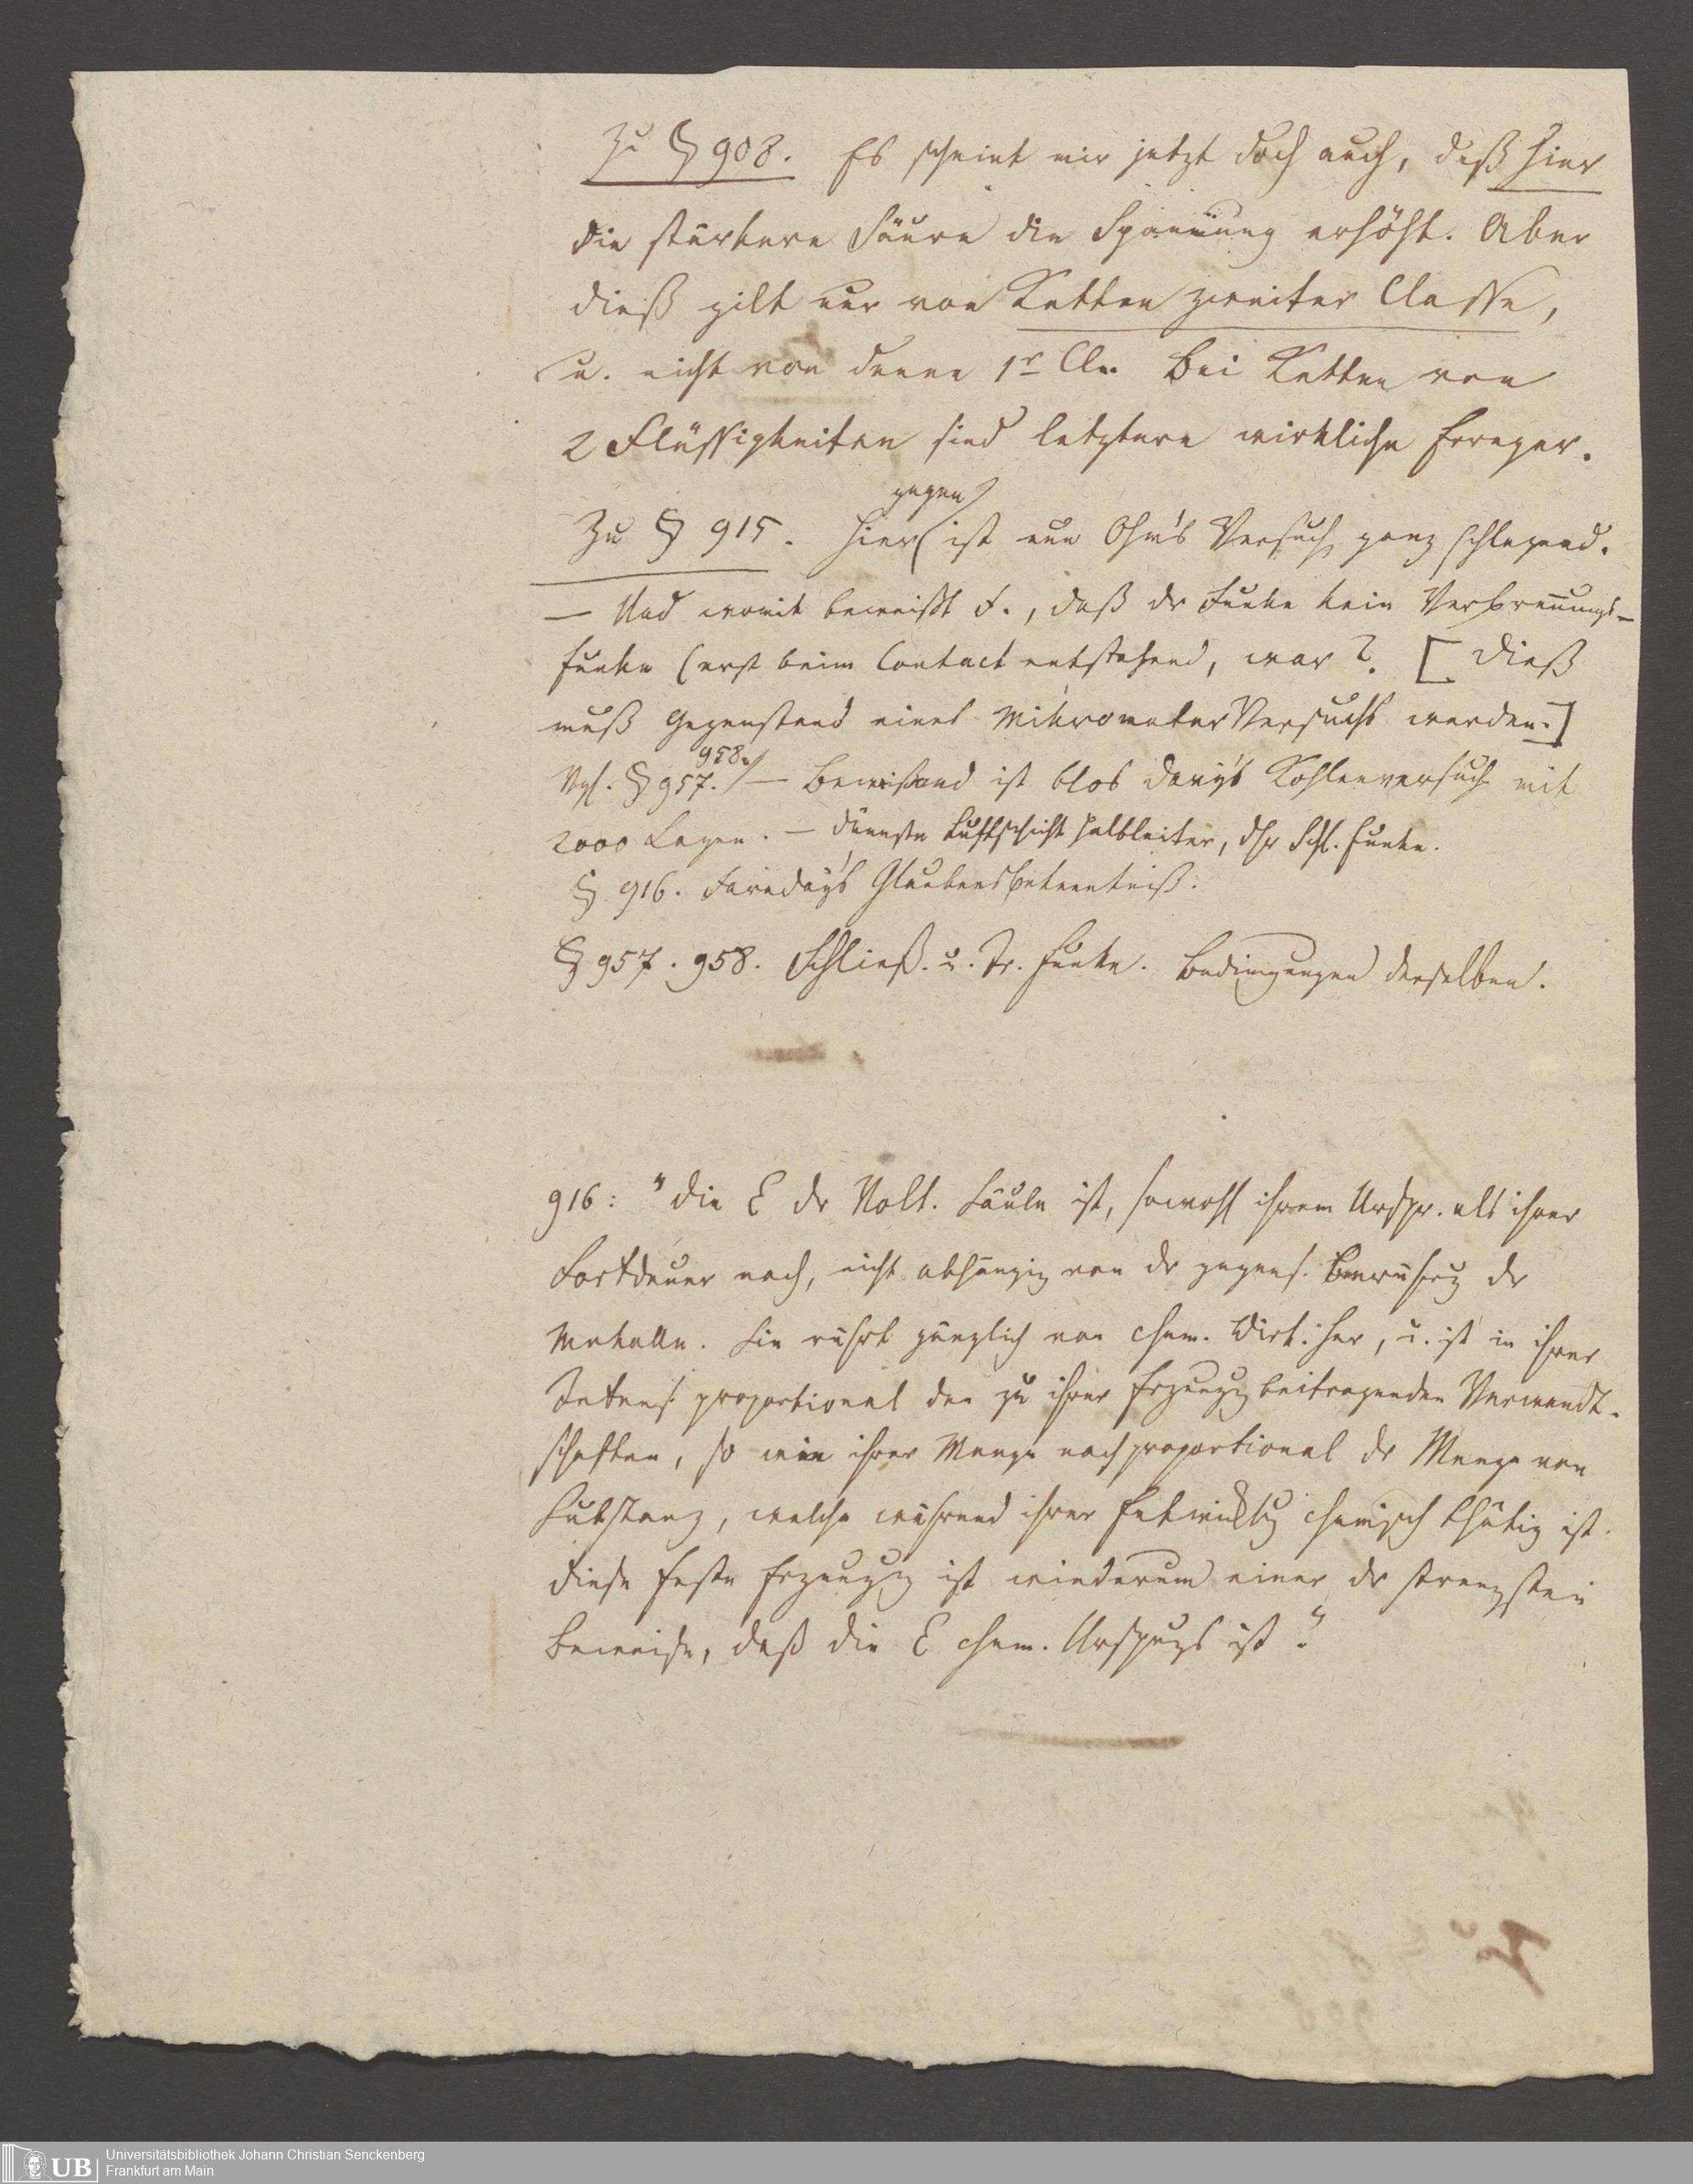 Zu § 908. Es scheint mir jetzt doch auch, daß hier
die stärkere Säure die Spannung erhöht. Aber
dieß gilt nur von Ketten zweiter Classe,
u. nicht von denen 1r Cl. Bei Ketten von
2 Flüssigkeiten sind letztere wirkliche Erreger.
gegen
Zu § 915. Hier ist nun Ohm's Versuch ganz schlagend.
— Und womit beweißt F., daß dr Funke kein Verbrennungs-
funke (erst beim Contact entstehend, war? [Dieß
muß Gegenstand eines MikrometerVersuchs werden.]
958.
Vgl. § 957. — Beweisend ist blos Davy's Kohlenversuch mit
2000 Lagen. — dünnste Luftschicht Halbleiter, dhr Schl. Funke.
§ 916. Faraday's Glaubensbekenntniß.
§ 957. 958. Schließ. u. Tr. Funke. Bedingungen derselben.
916: "Die E dr Volt. Säule ist, sowohl ihrem Urspr. als ihrer
Fortdauer nach, nicht abhängig von dr gegens. Berührg dr
Metalle. Sie rührt gänzlich von chem. Wirk. her, u. ist in ihrer
Intens. proportional den zu ihrer Erzeugg beitragenden Verwandt-
schaften, so wie ihrer Menge nach proportional dr Menge von
Substanz, welche während ihrer Entwicklg chemisch thätig ist.
Diese feste Erzeugg ist wiederum einer dr strengsten
Beweise, daß die E chem. Urspgs ist."
UB Universitätsbibliothek Johann Christian Senckenberg
Frankfurt am Main